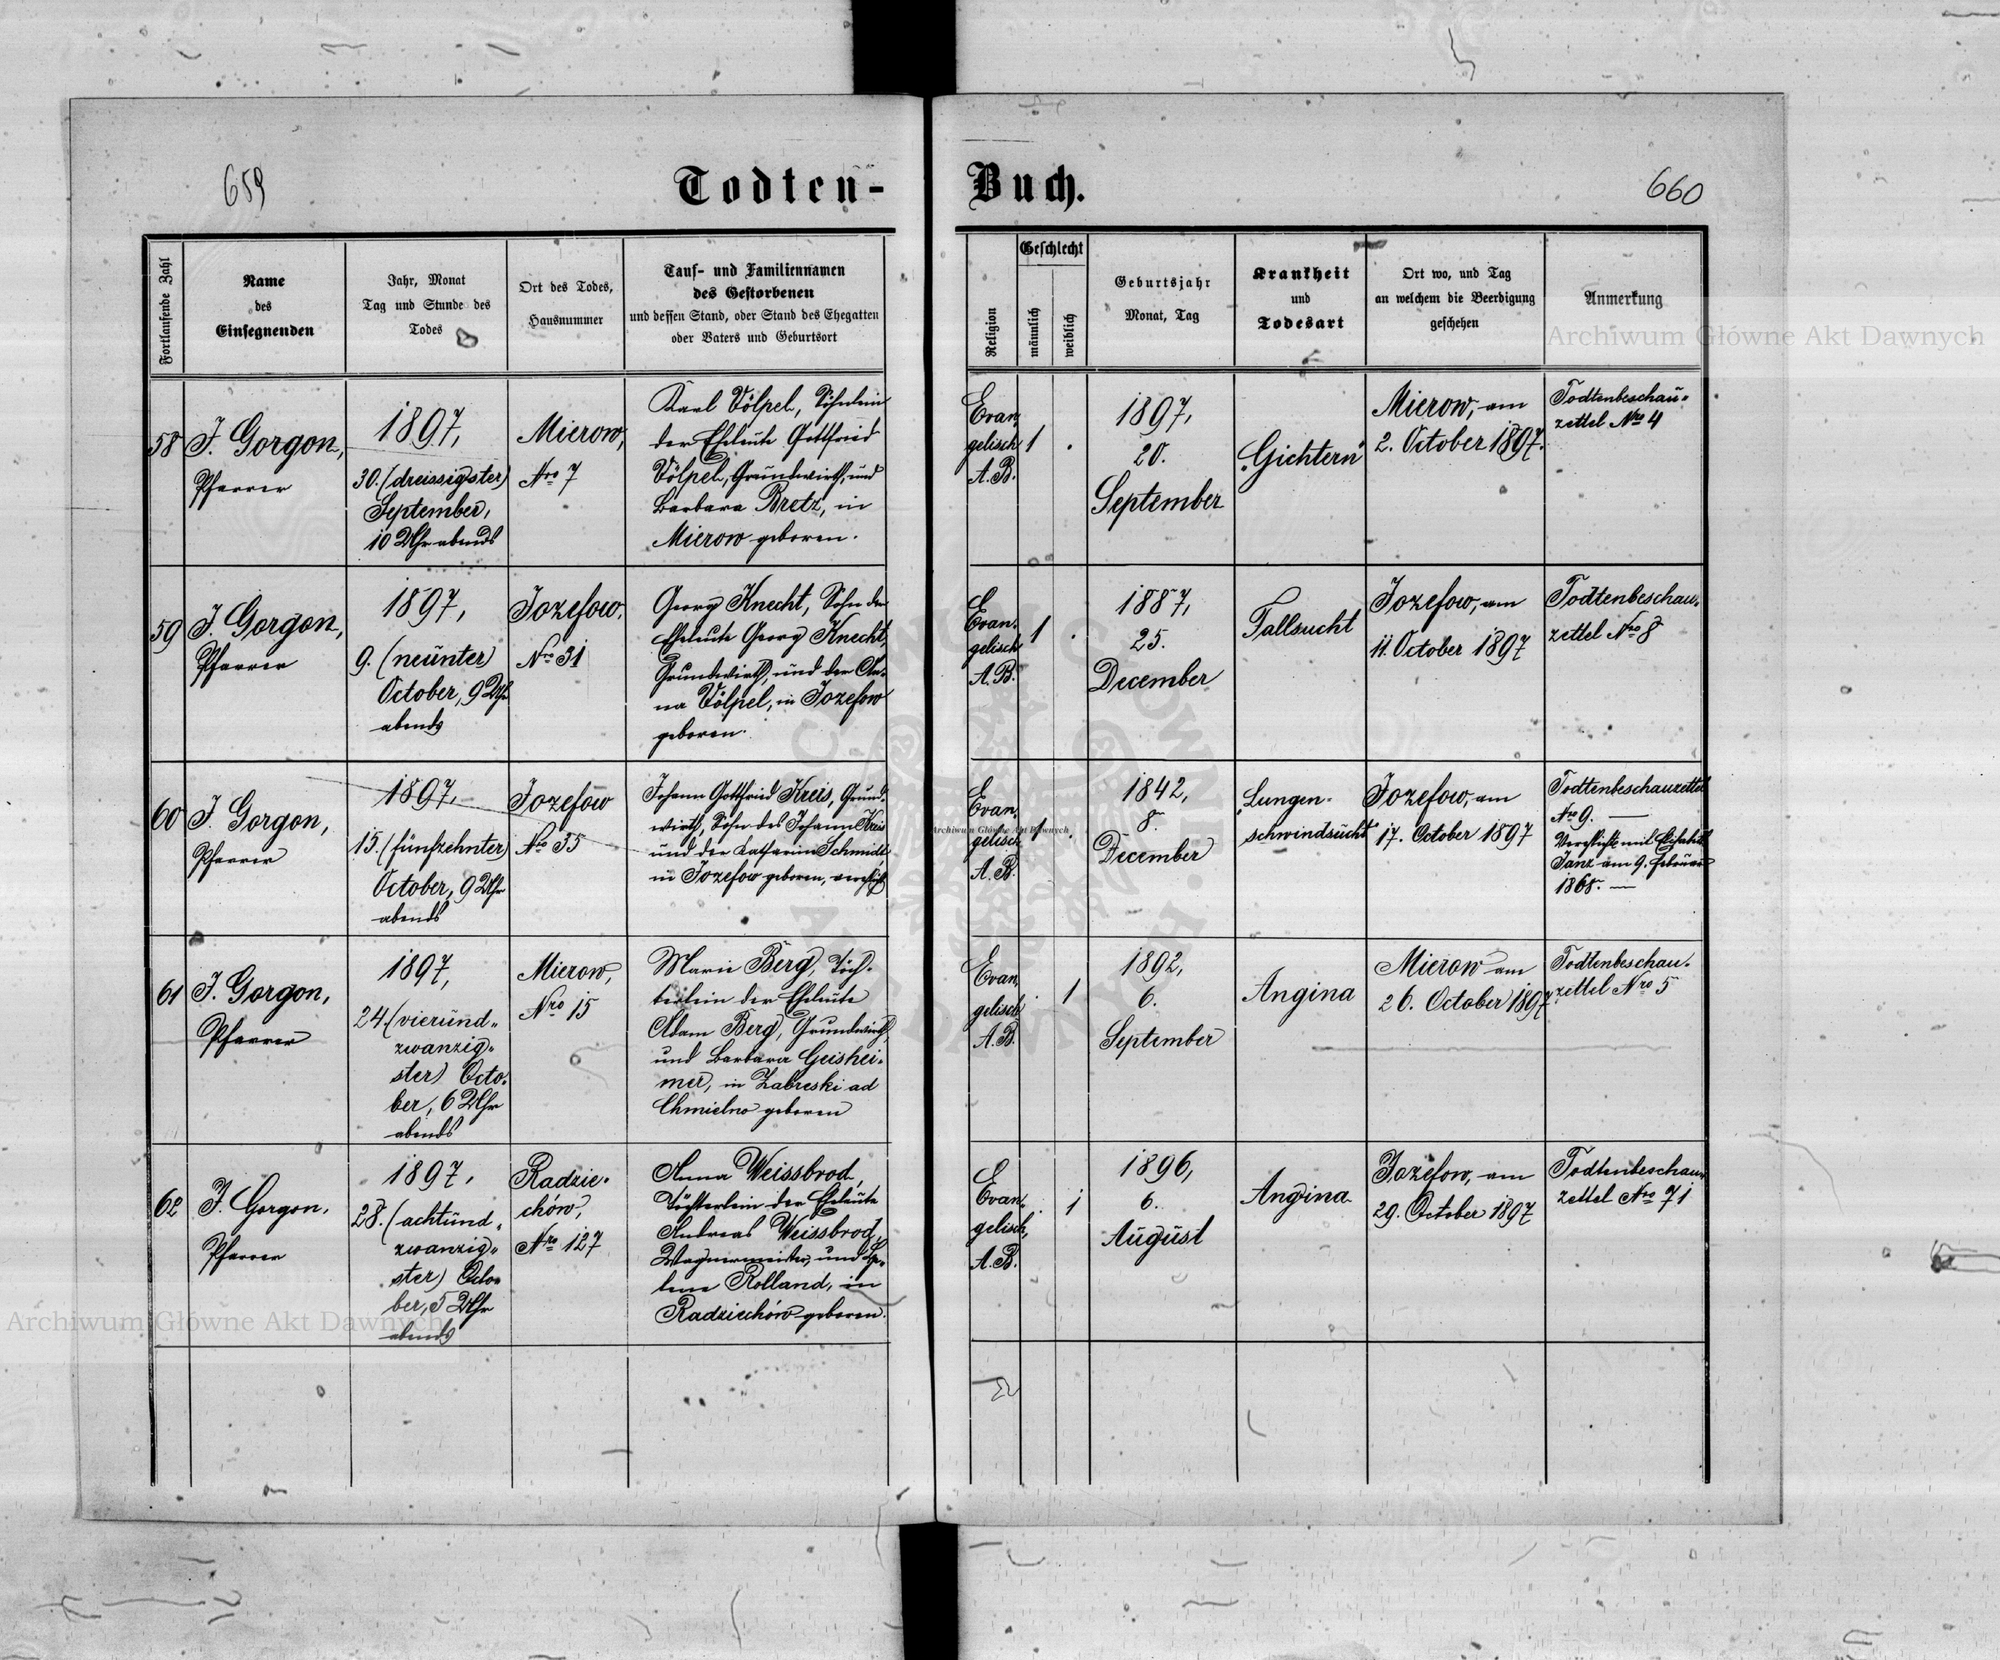 659
Todten-
Buch.
660
Fortlaufende Zahl
Name
des
Einsegnenden
Jahr, Monat
Tag und Stunde des
Todes
Ort des Todes,
Hausnummer
Tauf- und Familiennamen
des Gestorbenen
und dessen Stand, oder Stand des Ehegatten
oder Vaters und Geburtsort
Religion
Geschlecht
männlich
weiblich
Geburtsjahr
Monat, Tag
Krankheit
und
Todesart
Ort wo, und Tag
an welchem die Beerdigung
geschehen
Anmerkung
58
J. Gorgon,
Pfarrer
1897,
30. (dreissigster)
September,
10 Uhr abends
Mierow,
Nro 7
Karl Völpel, Söhnlein
der Eheleute Gottfried
Völpel, Grundwirth, und
Barbara Bretz, in
Mierow geboren.
Evan
gelisch
A. B.
1
.
1897,
20.
September
"Gichtern"
Mierow, am
2. October 1897.
Todtenbeschau-
zettel Nro 4
59
J. Gorgon,
Pfarrer
1897,
9. (neünter)
October, 9 Uhr
abends
Jozefow,
Nro 31
Georg Knecht, Sohn der
Eheleute Georg Knecht,
Grundwirth, und der An-
na Völpel, in Jozefow
geboren.
Evan.
gelisch
A. B.
1
.
1887,
25.
December
Fallsucht
Jozefow, am
11. October 1897
Todtenbeschau-
zettel Nro 8
60
J. Gorgon,
Pfarrer
1897,
15. (fünfzehnter)
October, 9 Uhr
abends
Jozefow
Nro 35
Johann Gottfried Kreis, Grund-
wirth, Sohn des Johann Kreis
und der Katharina Schmidt
in Jozefow geboren, verehlicht
Evan.
gelisch
A. B.
1
.
1842,
8.
December
Lungen-
schwindsücht
Jozefow, am
17. October 1897
Todtenbeschauzettel
Nro 9. —
Verehlicht mit Elisabeth
Janz am 9. Februar
1868. —
61
J. Gorgon,
Pfarrer
1897,
24. (vieründ-
zwanzig-
ster) Octo-
ber, 6 Uhr
abends
Mierow,
Nro 15
Marie Berg, Töch-
terlein der Eheleute
Adam Berg, Grundwirth,
und Barbara Geishei-
mer, in Zabreski ad
Chmielno geboren
Evan
gelisch
A. B.
.
1
1892,
6.
September
Angina
Mierow am
26. October 1897
Todtenbeschau-
zettel Nro 5
62
J. Gorgon,
Pfarrer
1897,
28. (achtünd-
zwanzig-
ster) Octo-
ber, 5 Uhr
abends
Radzie-
chów,
Nro 127
Anna Weissbrod,
Töchterlein der Eheleute
Andreas Weissbrod,
Wagnermeister, und He-
lene Rolland, in
Radziechów geboren.
Evan-
gelisch,
A. B.
.
1
1896,
6.
August
Angina
Jozefow, am
29. October 1897
Todtenbeschau-
zettel Nro 71
Archiwum Główne Akt Dawnych
Archiwum Główne Akt Dawnych
Archiwum Główne Akt Dawnych